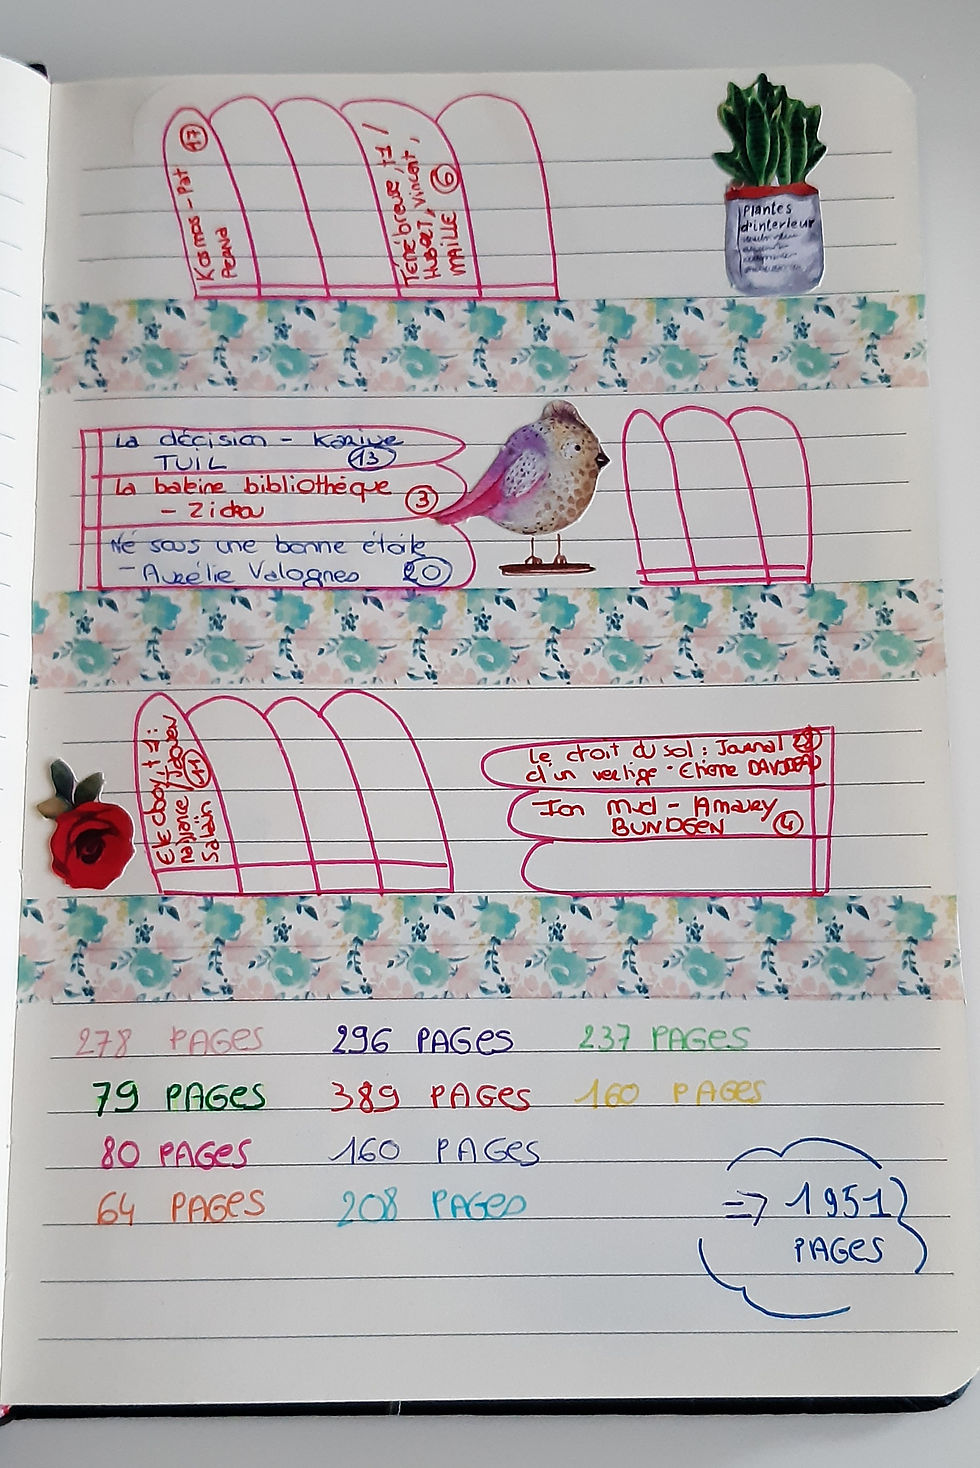 Kosmos - Pat
PERNA
17
Ténébreuse, t1 /
HUBERT, Vincent,
MAILLE 6
Plantes
d'interieur
La décision - Karine
TUIL 13
La baleine bibliothèque
- Zidrou 3
Né sous une bonne étoile
- Aurélie Valognes 20
Elecboy, t1:
naissance / Jaouen
Salaün 11
Le droit du sol : Journal
d'un vertige - Etienne DAVODEAU
Ion Mud - Amaury
BUNDGEN 4
278 PAGES 296 PAGES 237 PAGES
79 PAGES 389 PAGES 160 PAGES
80 PAGES 160 PAGES
64 PAGES 208 PAGES
=> 1951
PAGES